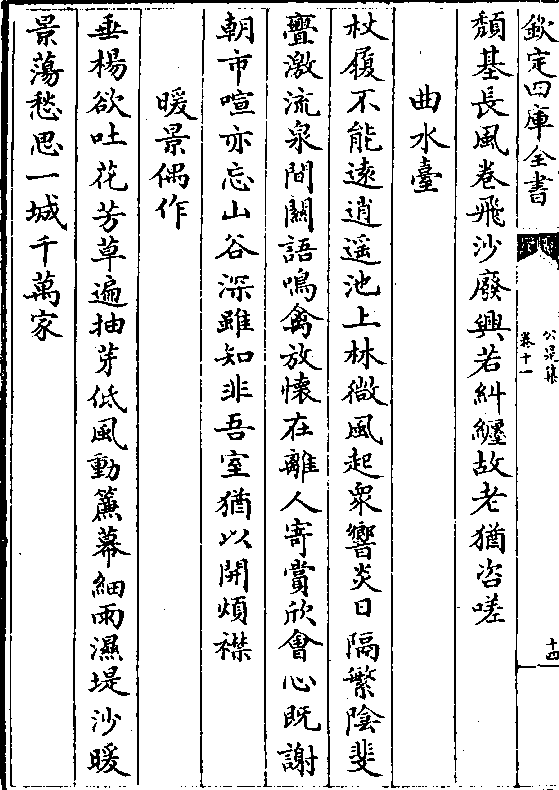 欽定四庫全書
公是集
卷十一
十四
頽基長風卷飛沙廢興若糾纒故老猶咨嗟
曲水臺
杖履不能逺逍遥池上林微風起衆響炎日隔繁陰斐
亹激流泉間關語鳴禽放懷在離人寄賞欣會心既謝
朝市喧亦忘山谷深雖知非吾室猶以開煩襟
暖景偶作
垂楊欲吐花芳草遍抽芽低風動簾幕細雨濕堤沙暖
景蕩愁思一城千萬家